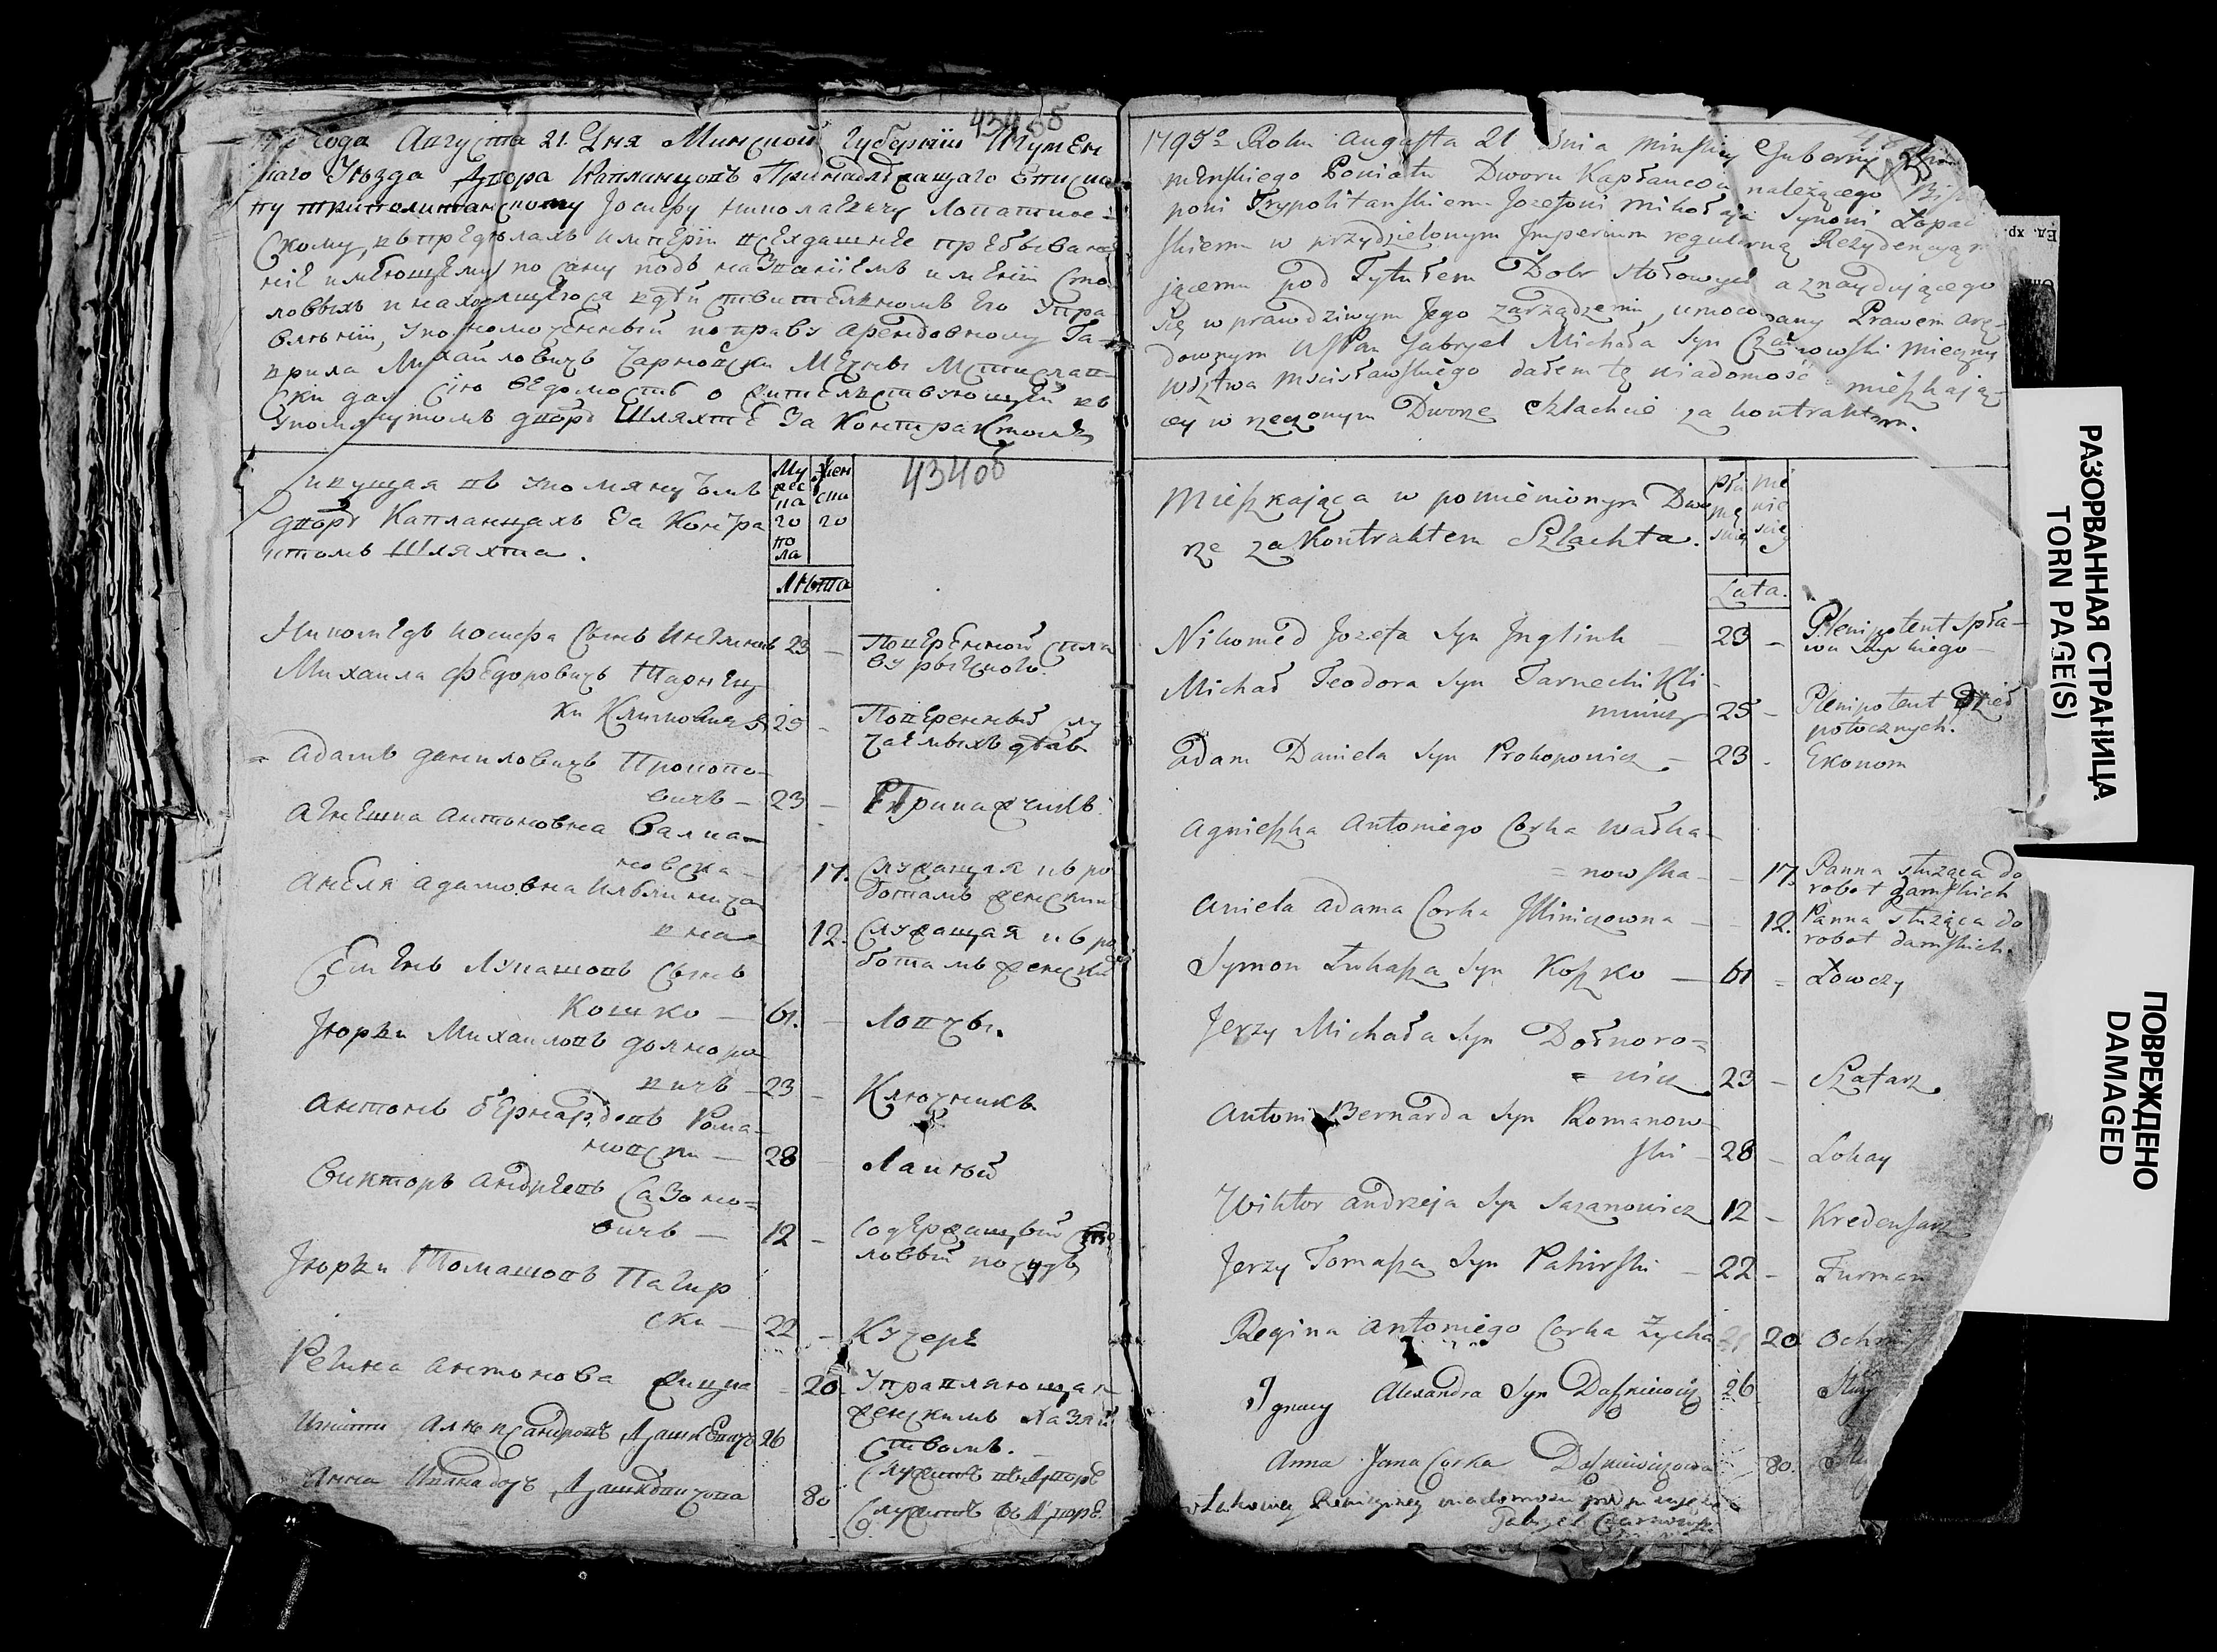 434об
года Августа 21. Дня Минской Губернїи Игумен
скаго Уѣзда Двора Каплинцовъ Принадлежащаго Еписко
пу триполитанскому Іосифу Николаевичу Лопатин
скому, въ предѣлахъ империи всегдашнее пребыва
ніе имѣющему по сану подъ названіемъ именій сто
ловыхъ и находящегося въ дѣйствителномъ Его Упра
вленіи, уполномоченный по праву арендовному Га
врила Михайловичъ Чарновски Мечны Мстислав
ски дал сію вѣдомость о жителствующей въ
упомянутомъ дворѣ Шляхте За Контрактомъ
434об
въ упомянутомъ
дворѣ Каплинцахъ За Контра
ктомъ Шляхта.
Му жен
жес ска
ка го
го
по
ла
Лѣта
Никомедъ Иосифа Сынъ Инглинкъ 23 — Повѣренной спла
ву рѣчного.
Михаила Федоровичъ Тарнец
ки Климовичъ 25 — Повѣренный слу
чаемыхъ дѣлъ
Адамъ Даниловичъ Прокопо-
вичъ — 23 — Прикащикъ
Агнешка Антоновна Валка-
новска — 17. Служащая къ ро
ботамъ женским
Анеля Адамовна Ильиничо
вна 12. Служащая къ ро
ботамъ женский
Семенъ Лукашовъ Сынъ
Кошко — 61. — Ловчы.
Юрки Михаиловъ Долноро
вичъ — 23 — Ключникъ
Антонъ Бернардовъ Рома-
новски — 28 — Лакей
Викторъ Андреевъ Сазоно=
вичъ — 12 — Содержащый сто
ловый посудъ
Юрки Томашовъ Пагир
ски — 22 — Кучеръ
Регина Антонова Жицка — 20. Управляющая
женскимъ Хазяй
ствомъ.
Игнати Александровъ Дашкевичъ 26 Служитъ въ Дворѣ
Анна Дашкевичова 80 Служитъ въ Дворѣ.
1795º Roku Augusta 21 Dnia Minskiey Guberny
menskiego Powiatu Dworu Kapłancow należącego Bis
powi Trypolitanskiemu Jozefowi Mikołaja Synowi Łopac
skiemu w przydzielonym Imperium regularną Rezydencyą m
jącemu pod Tytułem Dobr stołowych a znaydującego
się w prawdziwym Jego zarządzeniu, umocowany Prawem arę-
downym WJPan Gabryel Michała Syn Czarnowski Mieczny
Wdztwa Mscisławskiego dałem tę wiadomosc o mieszkają-
cey w rzeczonym Dworze Szlachcie za kontraktem.
Mieszkająca w pomienionym Dwo
rze za Kontraktem Szlachta.
Lata.
Nikomed Jozefa Syn Inglink — 23 — Plenipotent spła-
wu
Michał Teodora Syn Tarnecki Kli-
mowicz 25 — Plenipotent
potocznych.
Adam Daniela Syn Prokopowicz — 23. Ekonom
Agnieszka Antoniego Corka Wałka-
=nowska — 17. Panna służąca do
robot damskich
Aniela Adama Corka Iliniczowna — 12. Panna służąca do
robot damskich.
Symon Łukasza Syn Koszko — 61 = Łowczy
Jerzy Michała Syn Dołnoro=
=wicz 23 — Szafarz
Antoni Bernarda Syn Romanow
ski — 28 — Lokay
Wiktor Andrzeja Syn Sazanowicz 12 — Kredensarz
Jerzy Tomasza Syn Pahirski — 22 — Furman
Regina Antoniego Corka Życka 20 Ochmist
Ignacy Alexandra Syn Daszkiewicz 26 Służ
Anna Jana Corka Daszkiewiczowa 80.
Gabryel Czarnowski
РАЗОРВАННАЯ СТРАНИЦА
TORN PAGE(S)
ПОВРЕЖДЕНО
DAMAGED
Ед. хр.